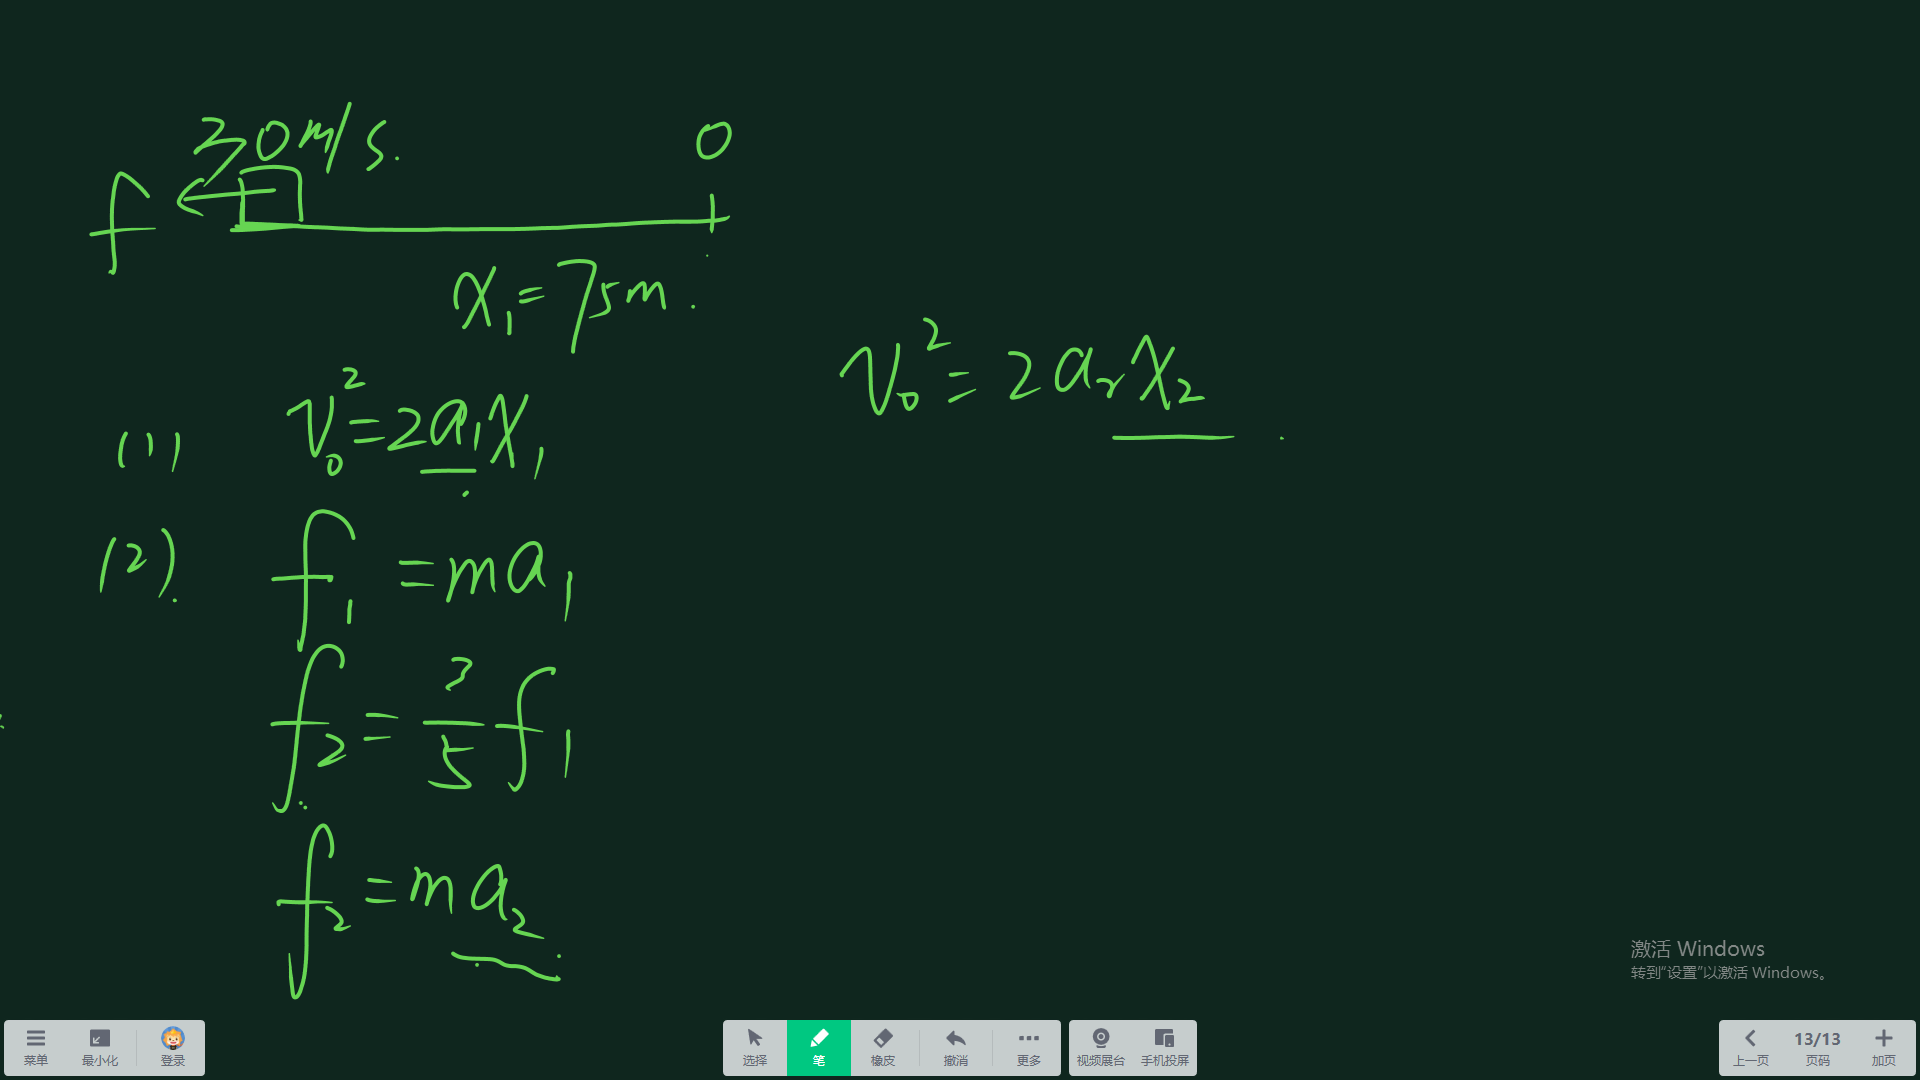 30m/s.
0
f
x₁=75m.
(1) v₀²=2a₁x₁
v₀²=2a₂x₂
(2). f₁=ma₁
f₂=3/5f₁
f₂=ma₂
激活 Windows
转到“设置”以激活 Windows。
菜单
最小化
登录
选择
笔
橡皮
撤消
更多
视频展台
手机投屏
上一页
13/13
页码
加页